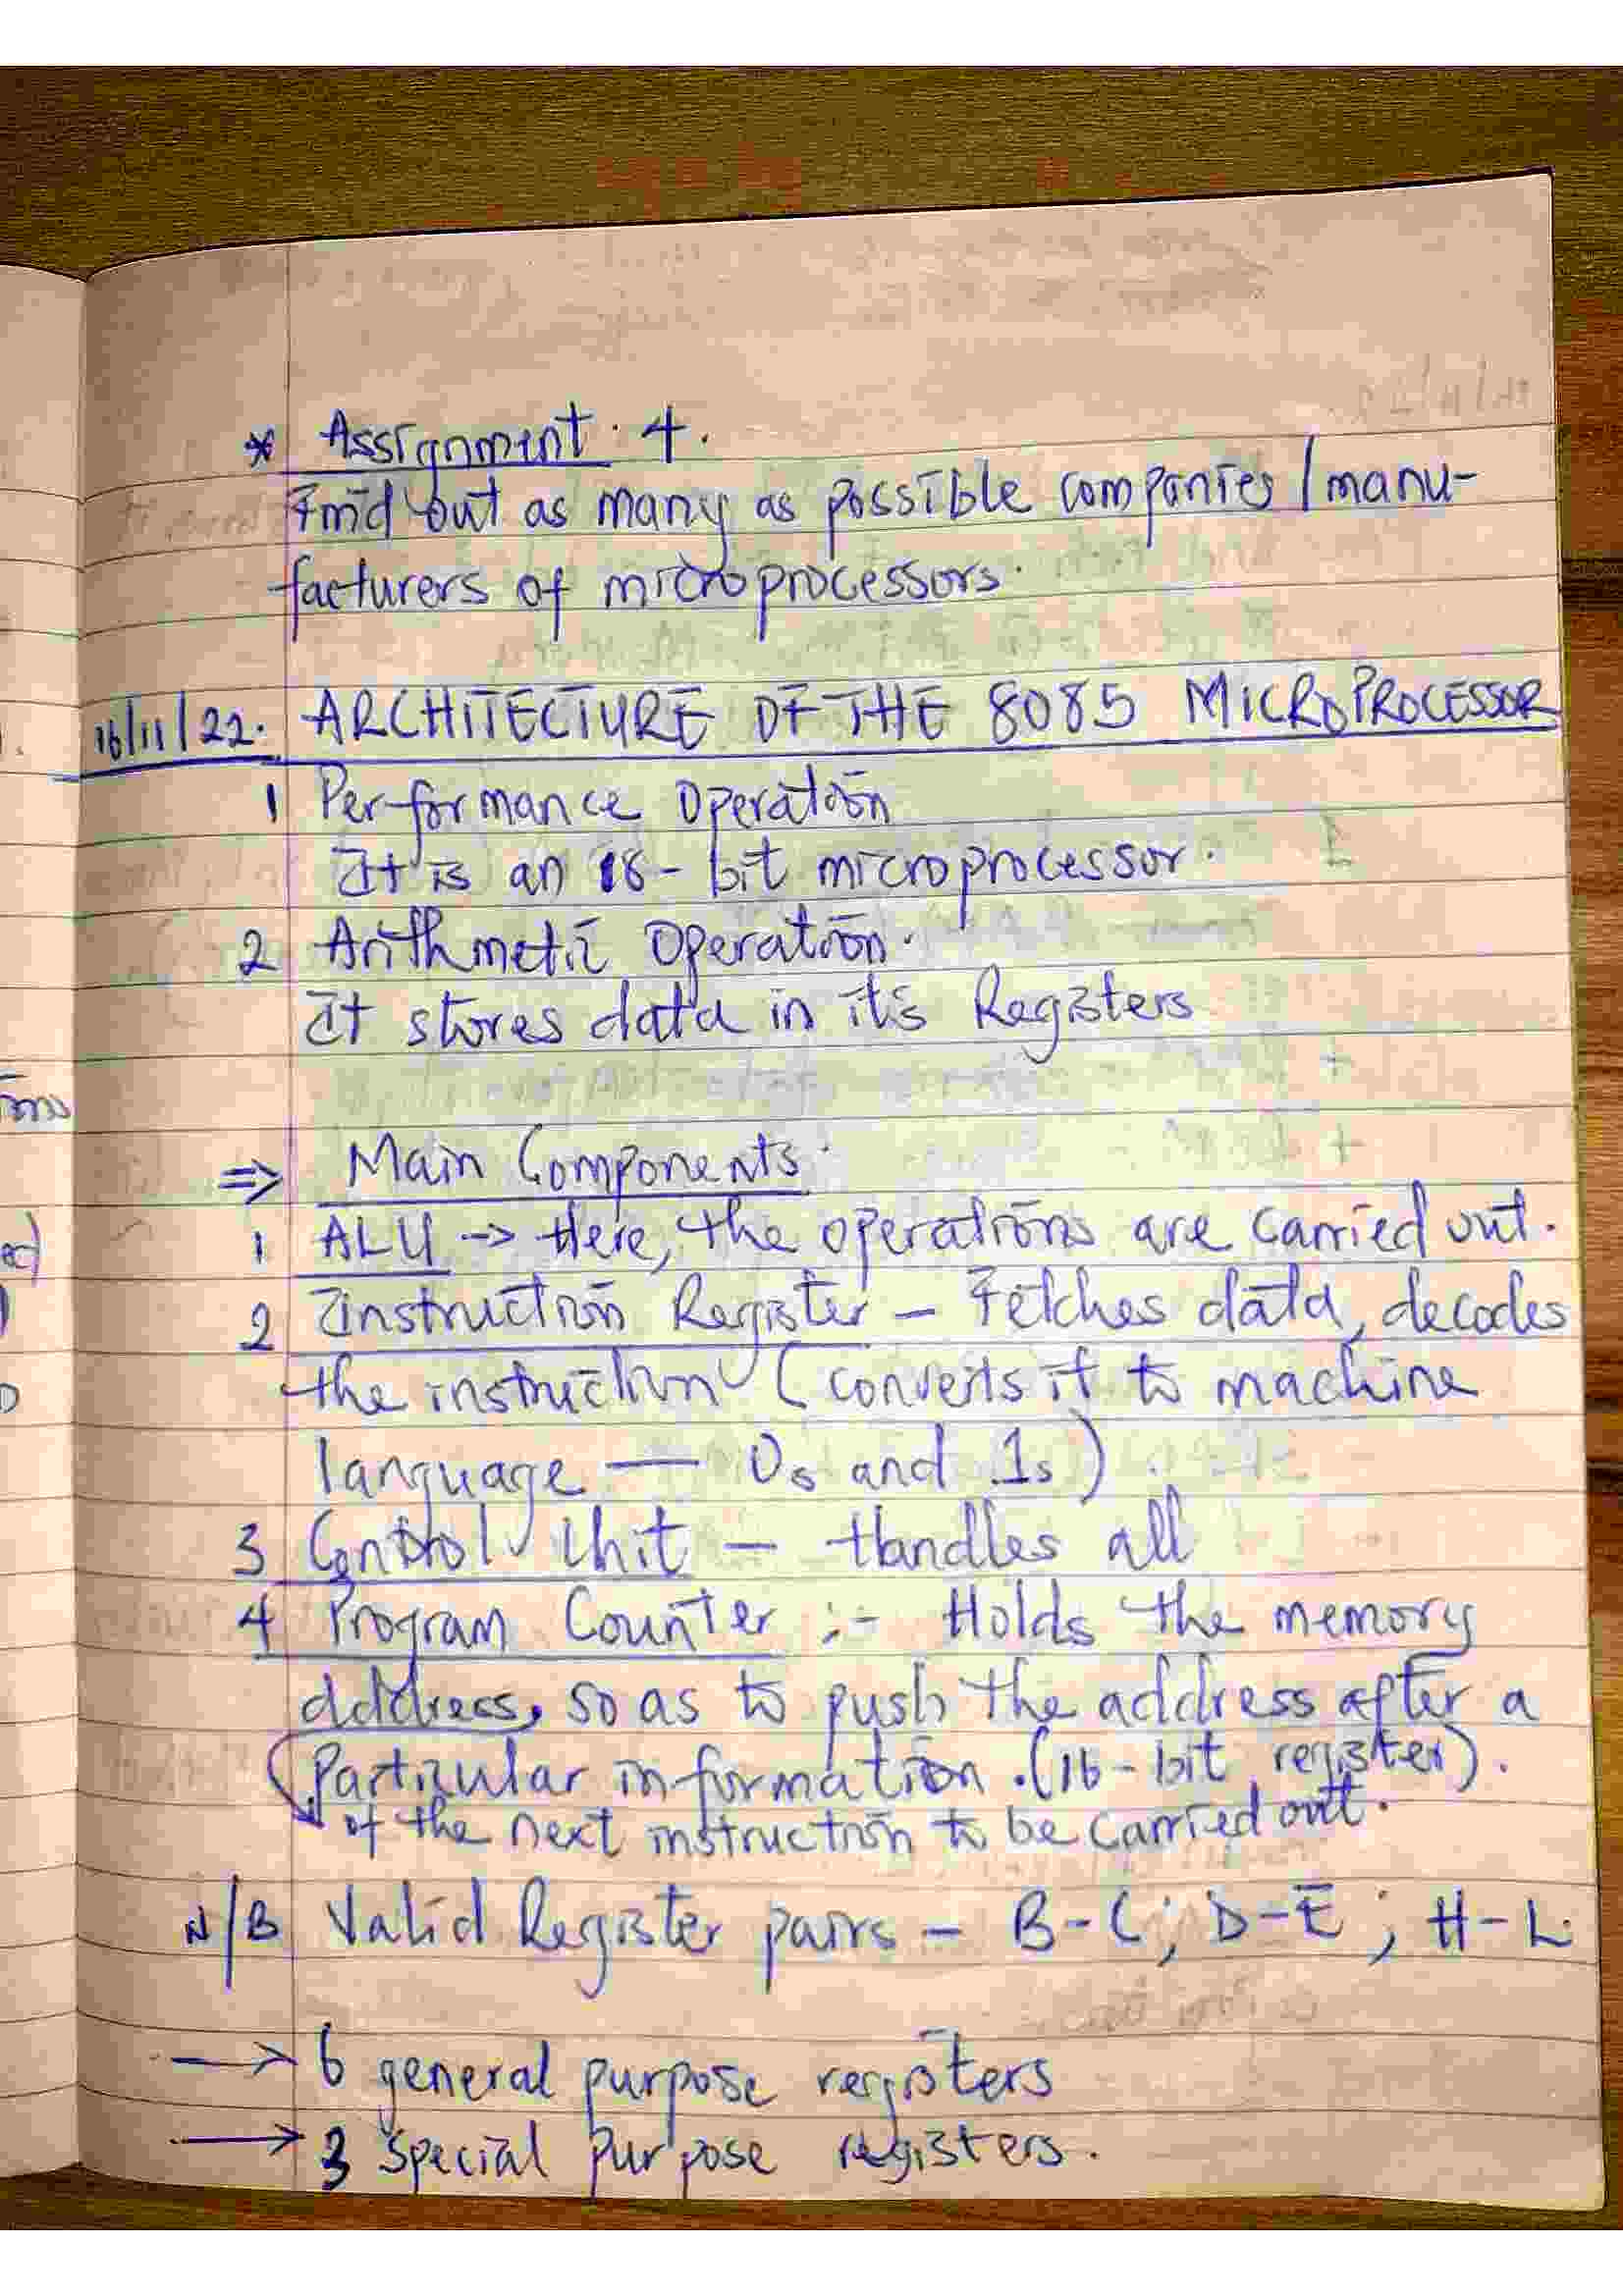 * Assignment 4.
Find out as many as possible companies / manu-
facturers of microprocessors.
16/11/22. ARCHITECTURE OF THE 8085 MICROPROCESSOR
1 Performance Operation
It is an 8-bit microprocessor.
2 Arithmetic Operation.
It stores data in it's Registers
⇒ Main Components.
1 ALU -> Here, the operations are carried out.
2 Instruction Register - Fetches data, decodes
the instruction (converts it to machine
language — 0s and 1s)
3 Control Unit - Handles all
4 Program Counter :- Holds the memory
address, so as to push the address after a
particular information. (16-bit register).
of the next instruction to be carried out.
N/B Valid Register pairs - B-C; D-E; H-L.
→ 6 general purpose registers
→ 3 special purpose registers.